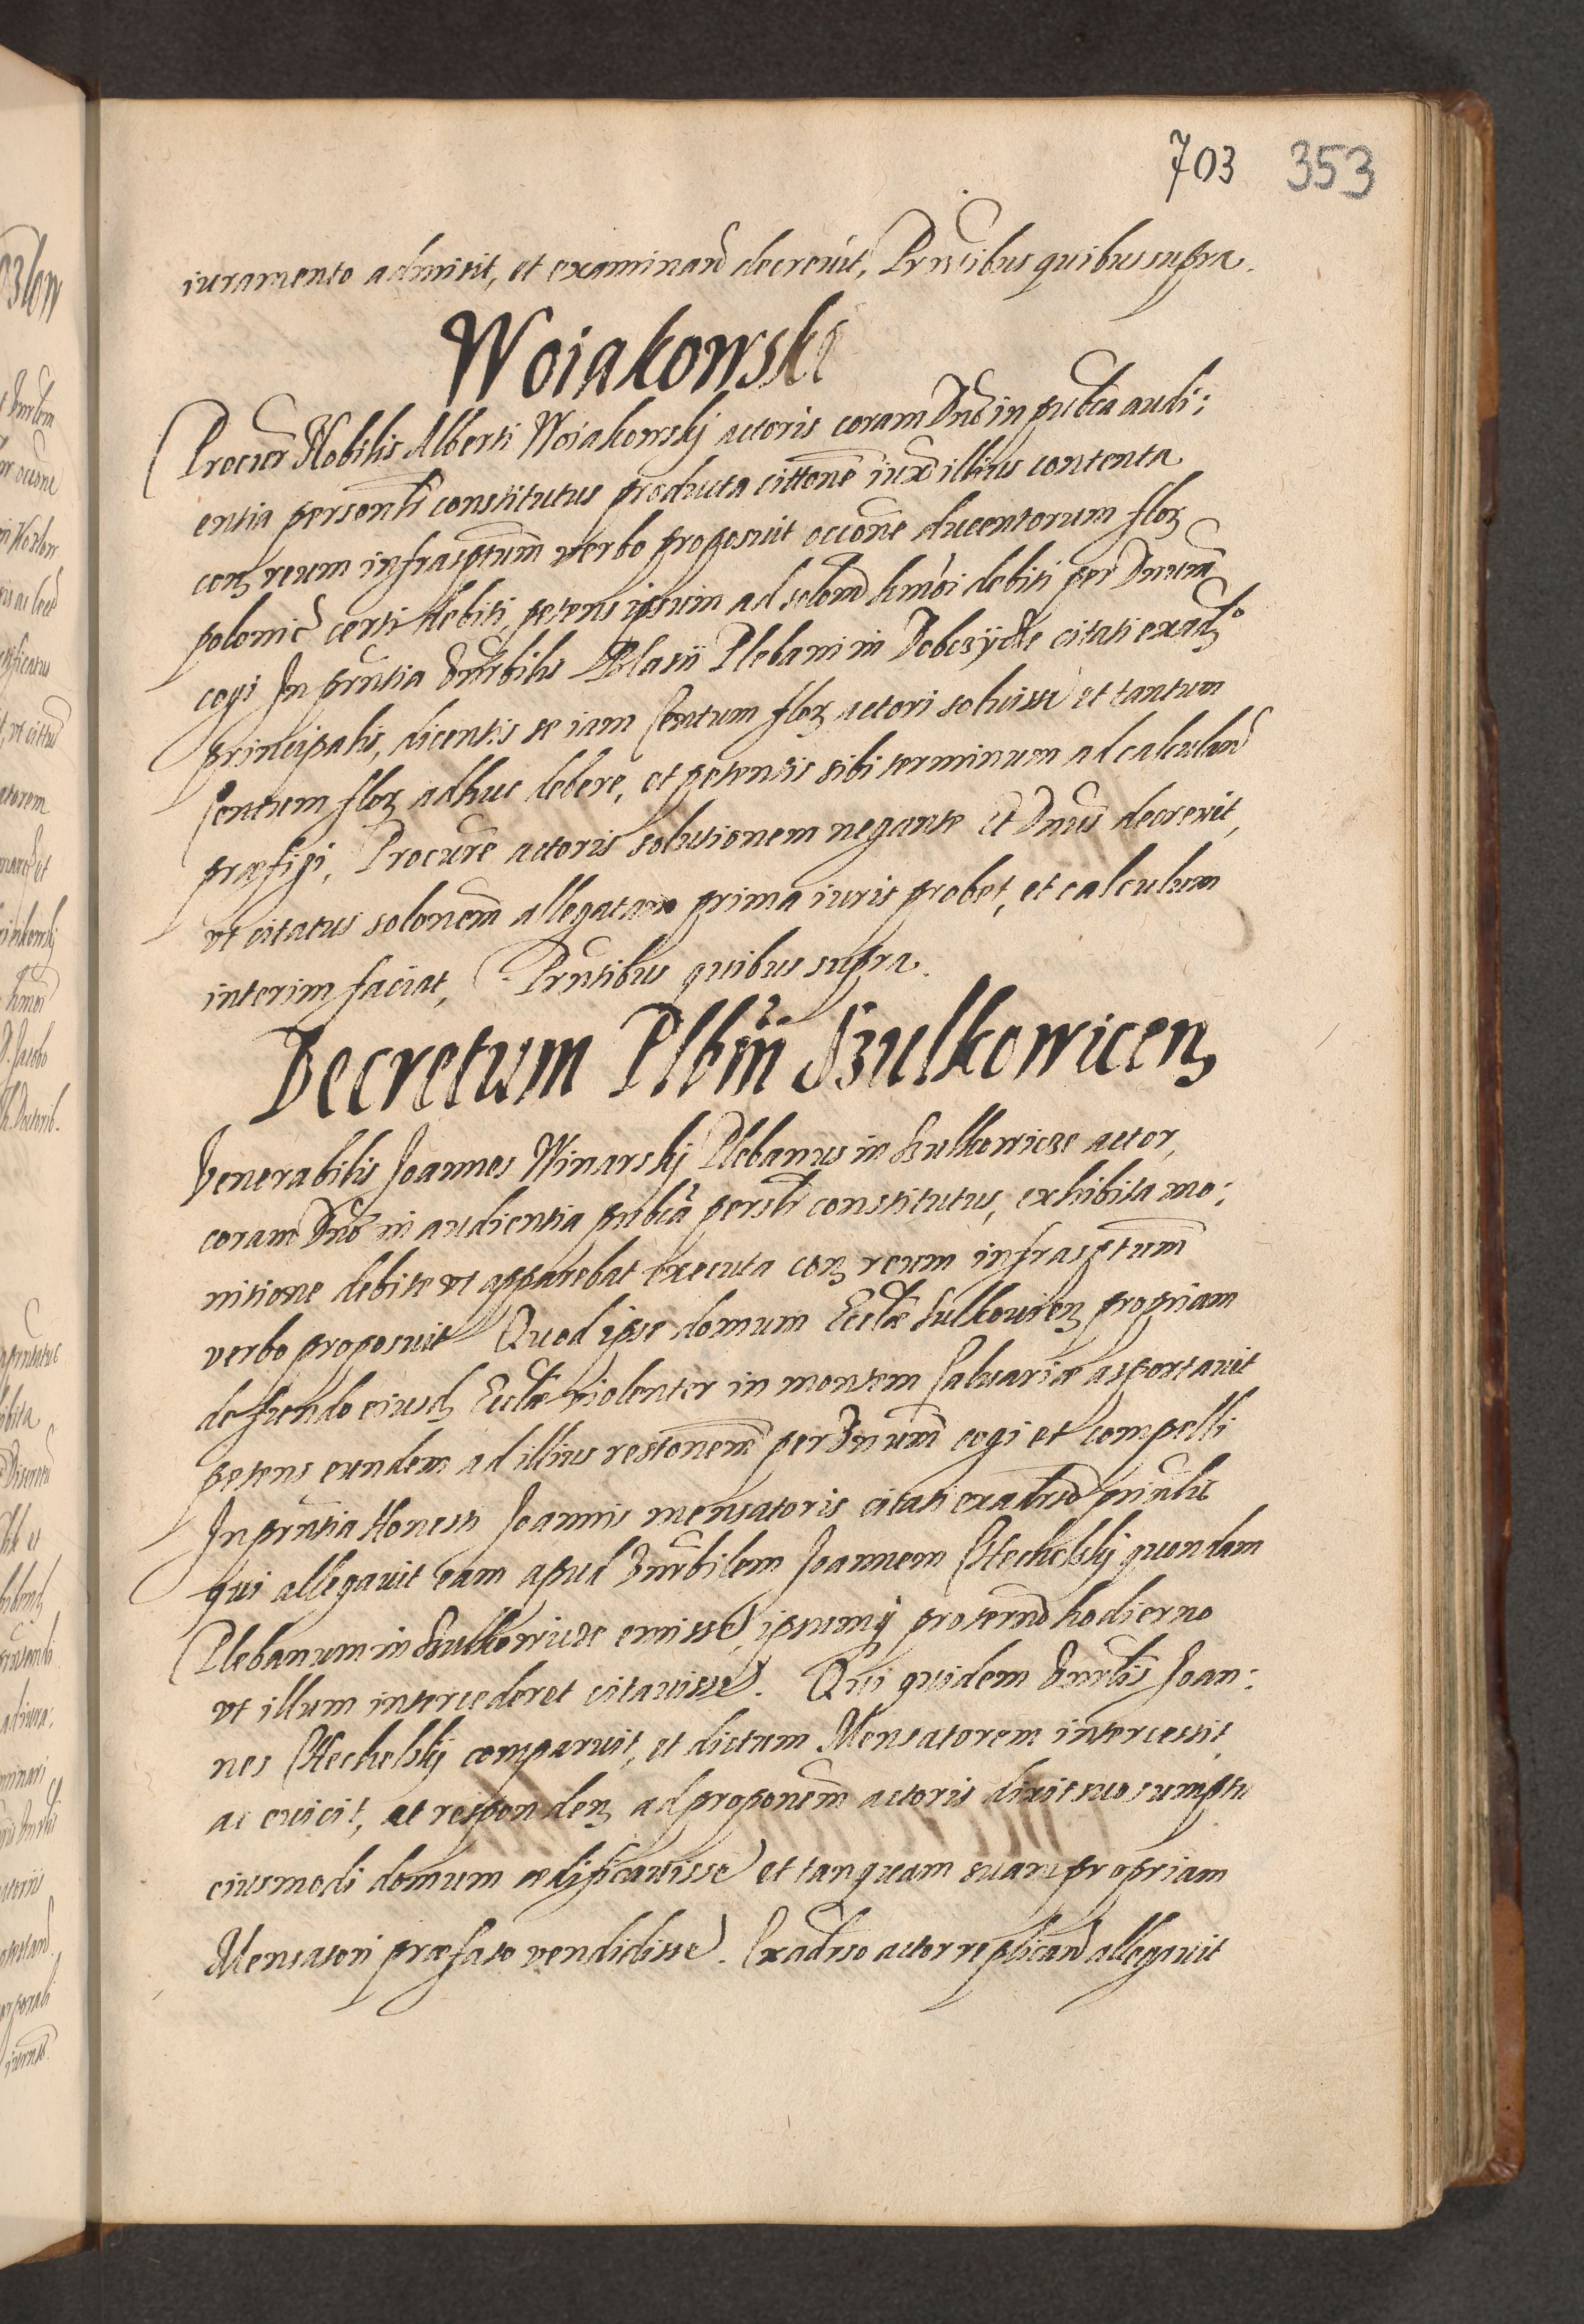 703 353
iuramento admisit, et examinand decreuit, Prntibus quibus supra.
Woiakowski
Procur Nobilis Alberti Woiakowskj actoris coram Dno in publca audi:
entia personlr constitutus producta cittone iux illius contenta
conz reum infrasptum verbo proposuit occione ducentorum florz
polonic certi debiti, petens ipsum ad solond hmoi debiti per Dnum
cogi In prntia Vnrbilis Blasii Plebani in Dobczycze citati ex adzo
principalis, dicentis se iam Centum florz actori soluisse et tantum
Centum florz adhuc debere, et petentis sibi terminum ad calculand
præfigi, Procure actoris solutionem negante Et Dnus decrevit,
vt citatus solonem allegatam prima iuris probet, et calculum
interim faciat, Prntibus quibus supra.
Decretum Plbni Szulkowicenz
Venerabilis Joannes Winarskj Plebanus in Szulkowicze actor,
coram Dno in audientia publca persnlr constitutus, exhibita mo:
nitione debite vt apparebat executa conz reum infrasptum
verbo proposuit Quod ipse domum Ecclæ Sulkouienz propriam
de fundo eiusdz Ecclæ violenter in montem Caluariæ asportauit
petens eundem ad illius restonem per Dnum cogi et compelli
In prntia Honesti Joannis mensatoris citati ex aduso prinlis
qui allegauit eam apud Vnrbilem Joannem Stechelskj quondam
Plebanum in Szulkowicze emisse, ipsumq pro termo hodierno
vt illum intercederet citauisse. Qui quidem Vnrblis Joan:
nes Stechelskj comparuit, et dictum Mensatorem intercessit,
ac euicit, et respondenz ad proponem actoris dixit suo sumptu
eiusmodi domum ædificauisse et tanquam suam propriam
Mensatori præfato vendidisse. Ex aduso actor replicand allegauit